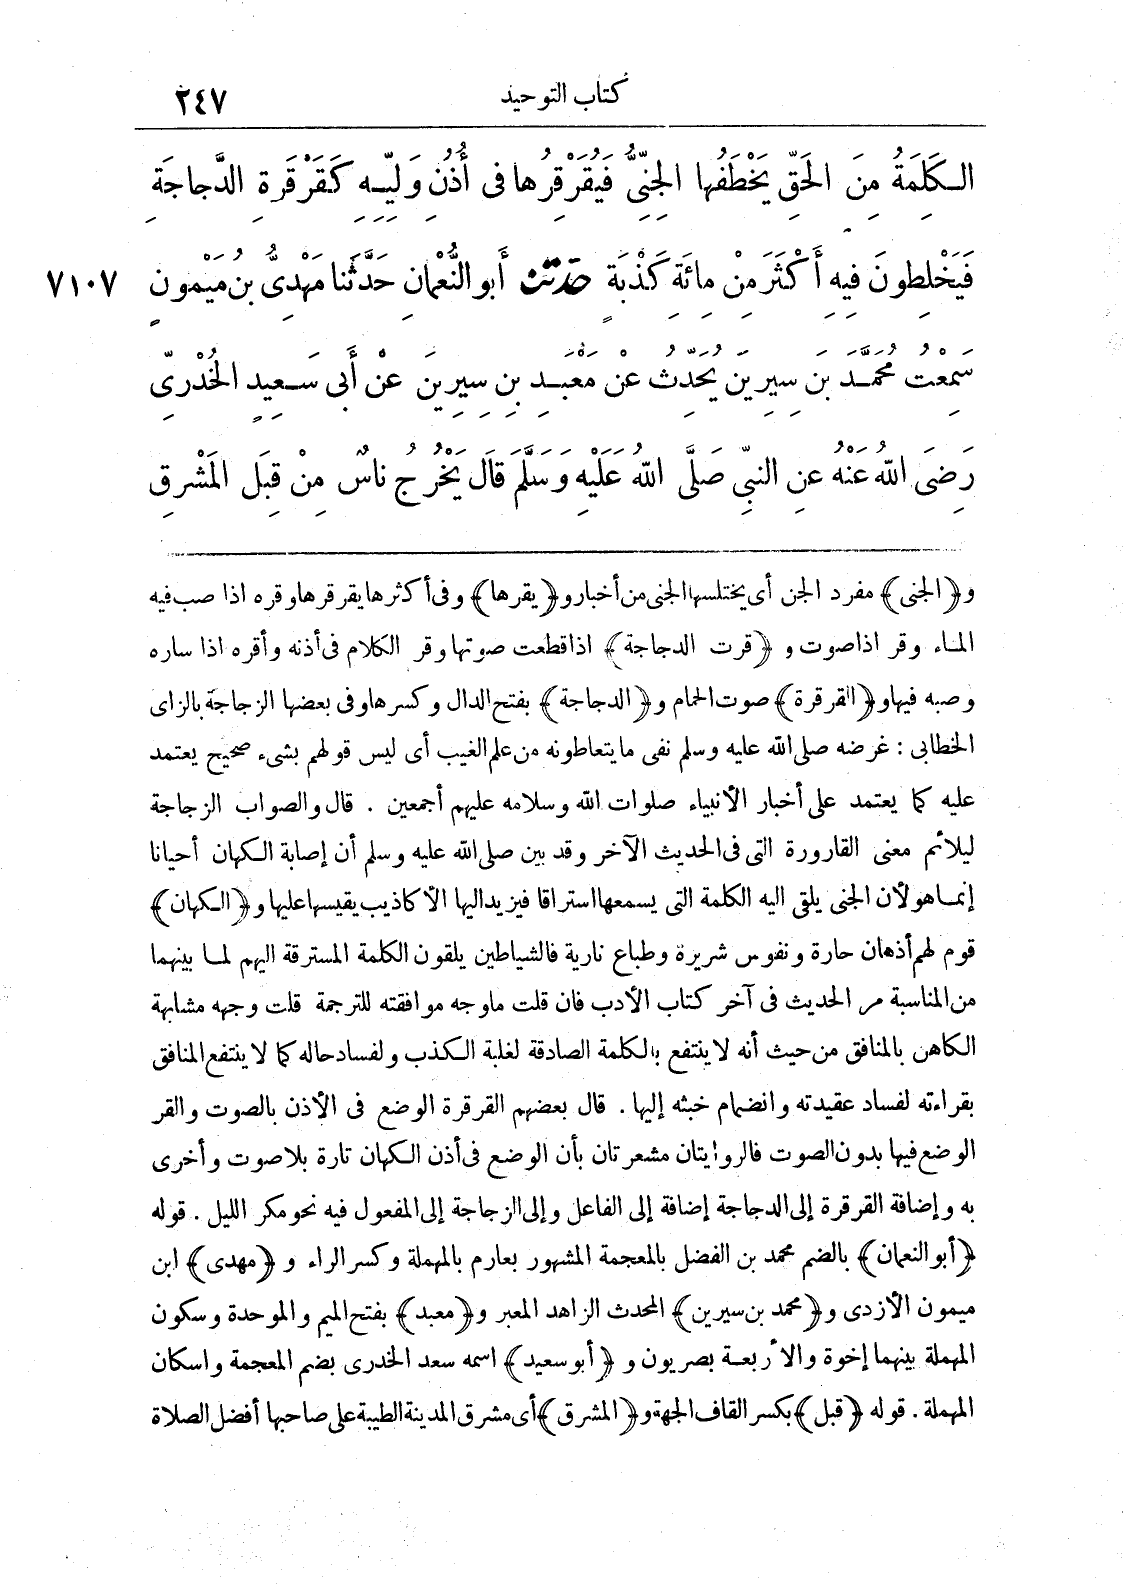 كتاب التوحيد ٢٤٧
الكَلِمَةُ مِنَ الحَقِّ يَخْطَفُها الجِنِّىُّ فَيُقَرْقِرُها فى أُذُنِ وَلِيِّهِ كَقَرْقَرةِ الدَّجاجَةِ
فَيَخْلِطونَ فِيهِ أَكْثَرَ مِنْ مائَةِ كَذْبَةٍ حدثنا أَبو النُّعْمانِ حَدَّثَنا مَهْدِىُّ بنُ مَيْمونٍ ٧١٠٧
سَمِعْتُ مُحَمَّدَ بنَ سِيرِينَ يُحَدِّثُ عنْ مَعْبَدِ بنِ سِيرِينَ عَنْ أَبى سَعِيدٍ الخُدْرِىِّ
رَضِىَ اللهُ عَنْهُ عنِ النبِىِّ صَلَّى اللهُ عَلَيْهِ وَسَلَّمَ قالَ يَخْرُجُ ناسٌ مِنْ قِبَلِ المَشْرِقِ
و﴿الجنى﴾ مفرد الجن أى يختلسها الجنى من أخبار و﴿يقرها﴾ وفى أكثرها يقرقرها وقره اذا صب فيه
الماء وقر اذا صوت و ﴿قرت الدجاجة﴾ اذا قطعت صوتها وقر الكلام فى أذنه وأقره اذا ساره
وصبه فيها و﴿القرقرة﴾ صوت الحمام و﴿الدجاجة﴾ بفتح الدال وكسرها وفى بعضها الزجاجة بالزاى
الخطابى : غرضه صلى الله عليه وسلم نفى ما يتعاطونه من علم الغيب أى ليس قولهم بشىء صحيح يعتمد
عليه كما يعتمد على أخبار الأنبياء صلوات الله وسلامه عليهم أجمعين . قال والصواب الزجاجة
ليلائم معنى القارورة التى فى الحديث الآخر وقد بين صلى الله عليه وسلم أن إصابة الكهان أحيانا
إنما هو لأن الجنى يلقى اليه الكلمة التى يسمعها استراقا فيزيد اليها الأكاذيب يقيسها عليها و﴿الكهان﴾
قوم لهم أذهان حارة ونفوس شريرة وطباع نارية فالشياطين يلقون الكلمة المسترقة اليهم لما بينهما
من المناسبة مر الحديث فى آخر كتاب الأدب فان قلت ما وجه موافقته للترجمة قلت وجهه مشابهة
الكاهن بالمنافق من حيث أنه لا ينتفع بالكلمة الصادقة لغلبة الكذب ولفساد حاله كما لا ينتفع المنافق
بقراءته لفساد عقيدته وانضمام خبثه إليها . قال بعضهم القرقرة الوضع فى الأذن بالصوت والقر
الوضع فيها بدون الصوت فالروايتان مشعرتان بأن الوضع فى أذن الكهان تارة بلا صوت وأخرى
به وإضافة القرقرة إلى الدجاجة إضافة إلى الفاعل وإلى الزجاجة إلى المفعول فيه نحو مكر الليل . قوله
﴿أبو النعمان﴾ بالضم محمد بن الفضل بالمعجمة المشهور بعارم بالمهملة وكسر الراء و ﴿مهدى﴾ ابن
ميمون الأزدى و﴿محمد بن سيرين﴾ المحدث الزاهد المعبر و﴿معبد﴾ بفتح الميم والموحدة وسكون
المهملة بينهما إخوة والأربعة بصريون و ﴿أبو سعيد﴾ اسمه سعد الخدرى بضم المعجمة واسكان
المهملة . قوله ﴿قبل﴾ بكسر القاف الجهة و﴿المشرق﴾ أى مشرق المدينة الطيبة على صاحبها أفضل الصلاة